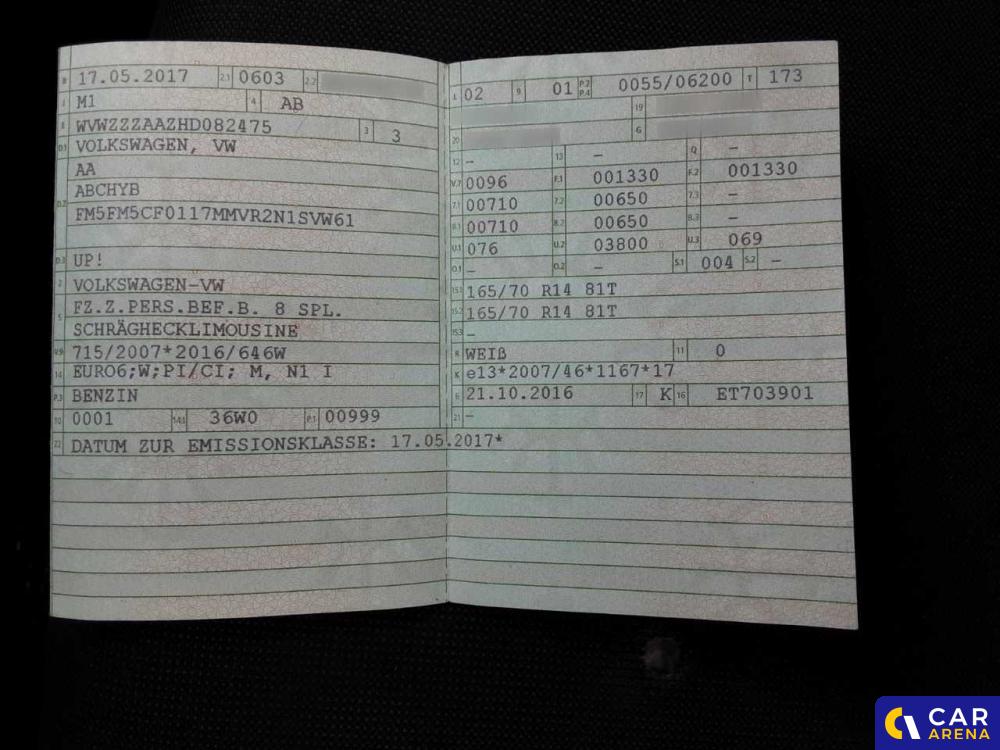 B 17.05.2017 2.1 0603 2.2
J M1 4 AB
E WVWZZZAAZHD082475 3 3
D.1 VOLKSWAGEN, VW
AA
D.2 ABCHYB
FM5FM5CF0117MMVR2N1SVW61
D.3 UP!
2 VOLKSWAGEN-VW
5 FZ.Z.PERS.BEF.B. 8 SPL.
SCHRÄGHECKLIMOUSINE
V.9 715/2007*2016/646W
14 EURO6;W;PI/CI; M, N1 I
P.3 BENZIN
10 0001 14.1 36W0 P.1 00999
22 DATUM ZUR EMISSIONSKLASSE: 17.05.2017*
L 02 9 01 P.2 P.4 0055/06200 T 173
19
20 G
12 – 13 – Q –
V.7 0096 F.1 001330 F.2 001330
7.1 00710 7.2 00650 7.3 –
8.1 00710 8.2 00650 8.3 –
U.1 076 U.2 03800 U.3 069
O.1 – O.2 – S.1 004 S.2 –
15.1 165/70 R14 81T
15.2 165/70 R14 81T
15.3 –
R WEIß 11 0
K e13*2007/46*1167*17
6 21.10.2016 17 K 16 ET703901
21 –
CAR
ARENA